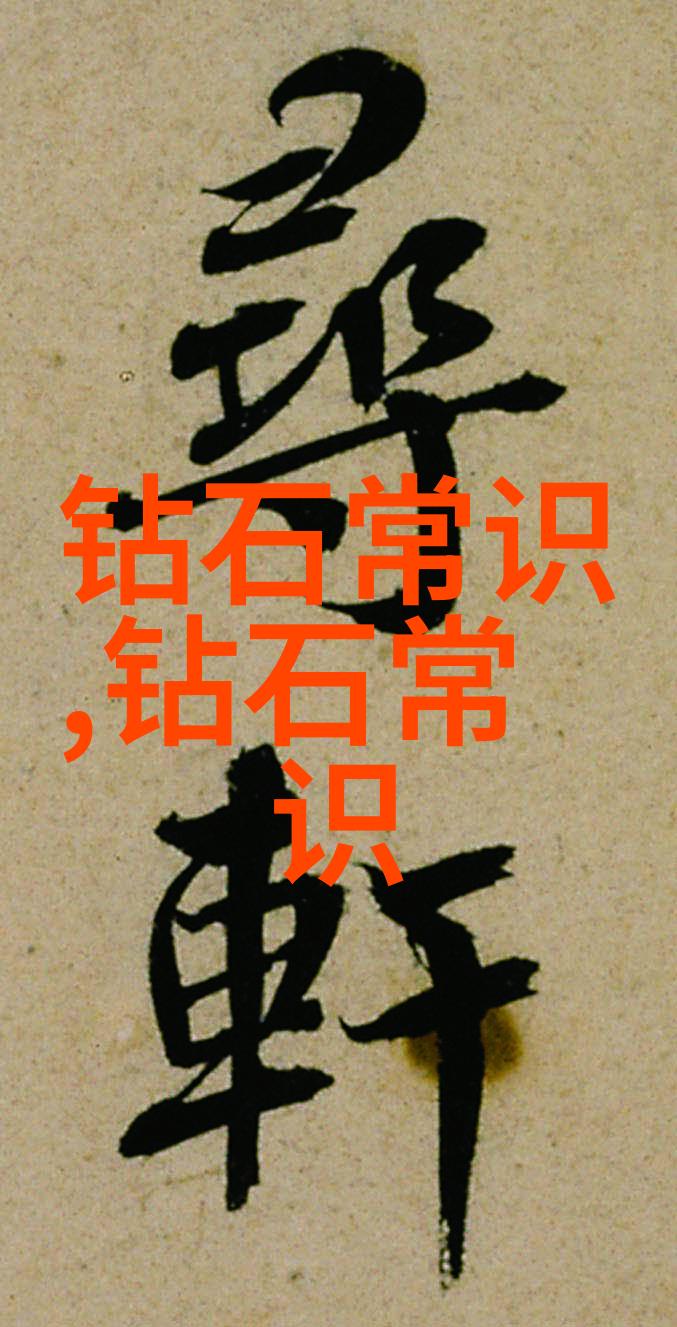 尋
軒
钻石常识
,钻石常
识